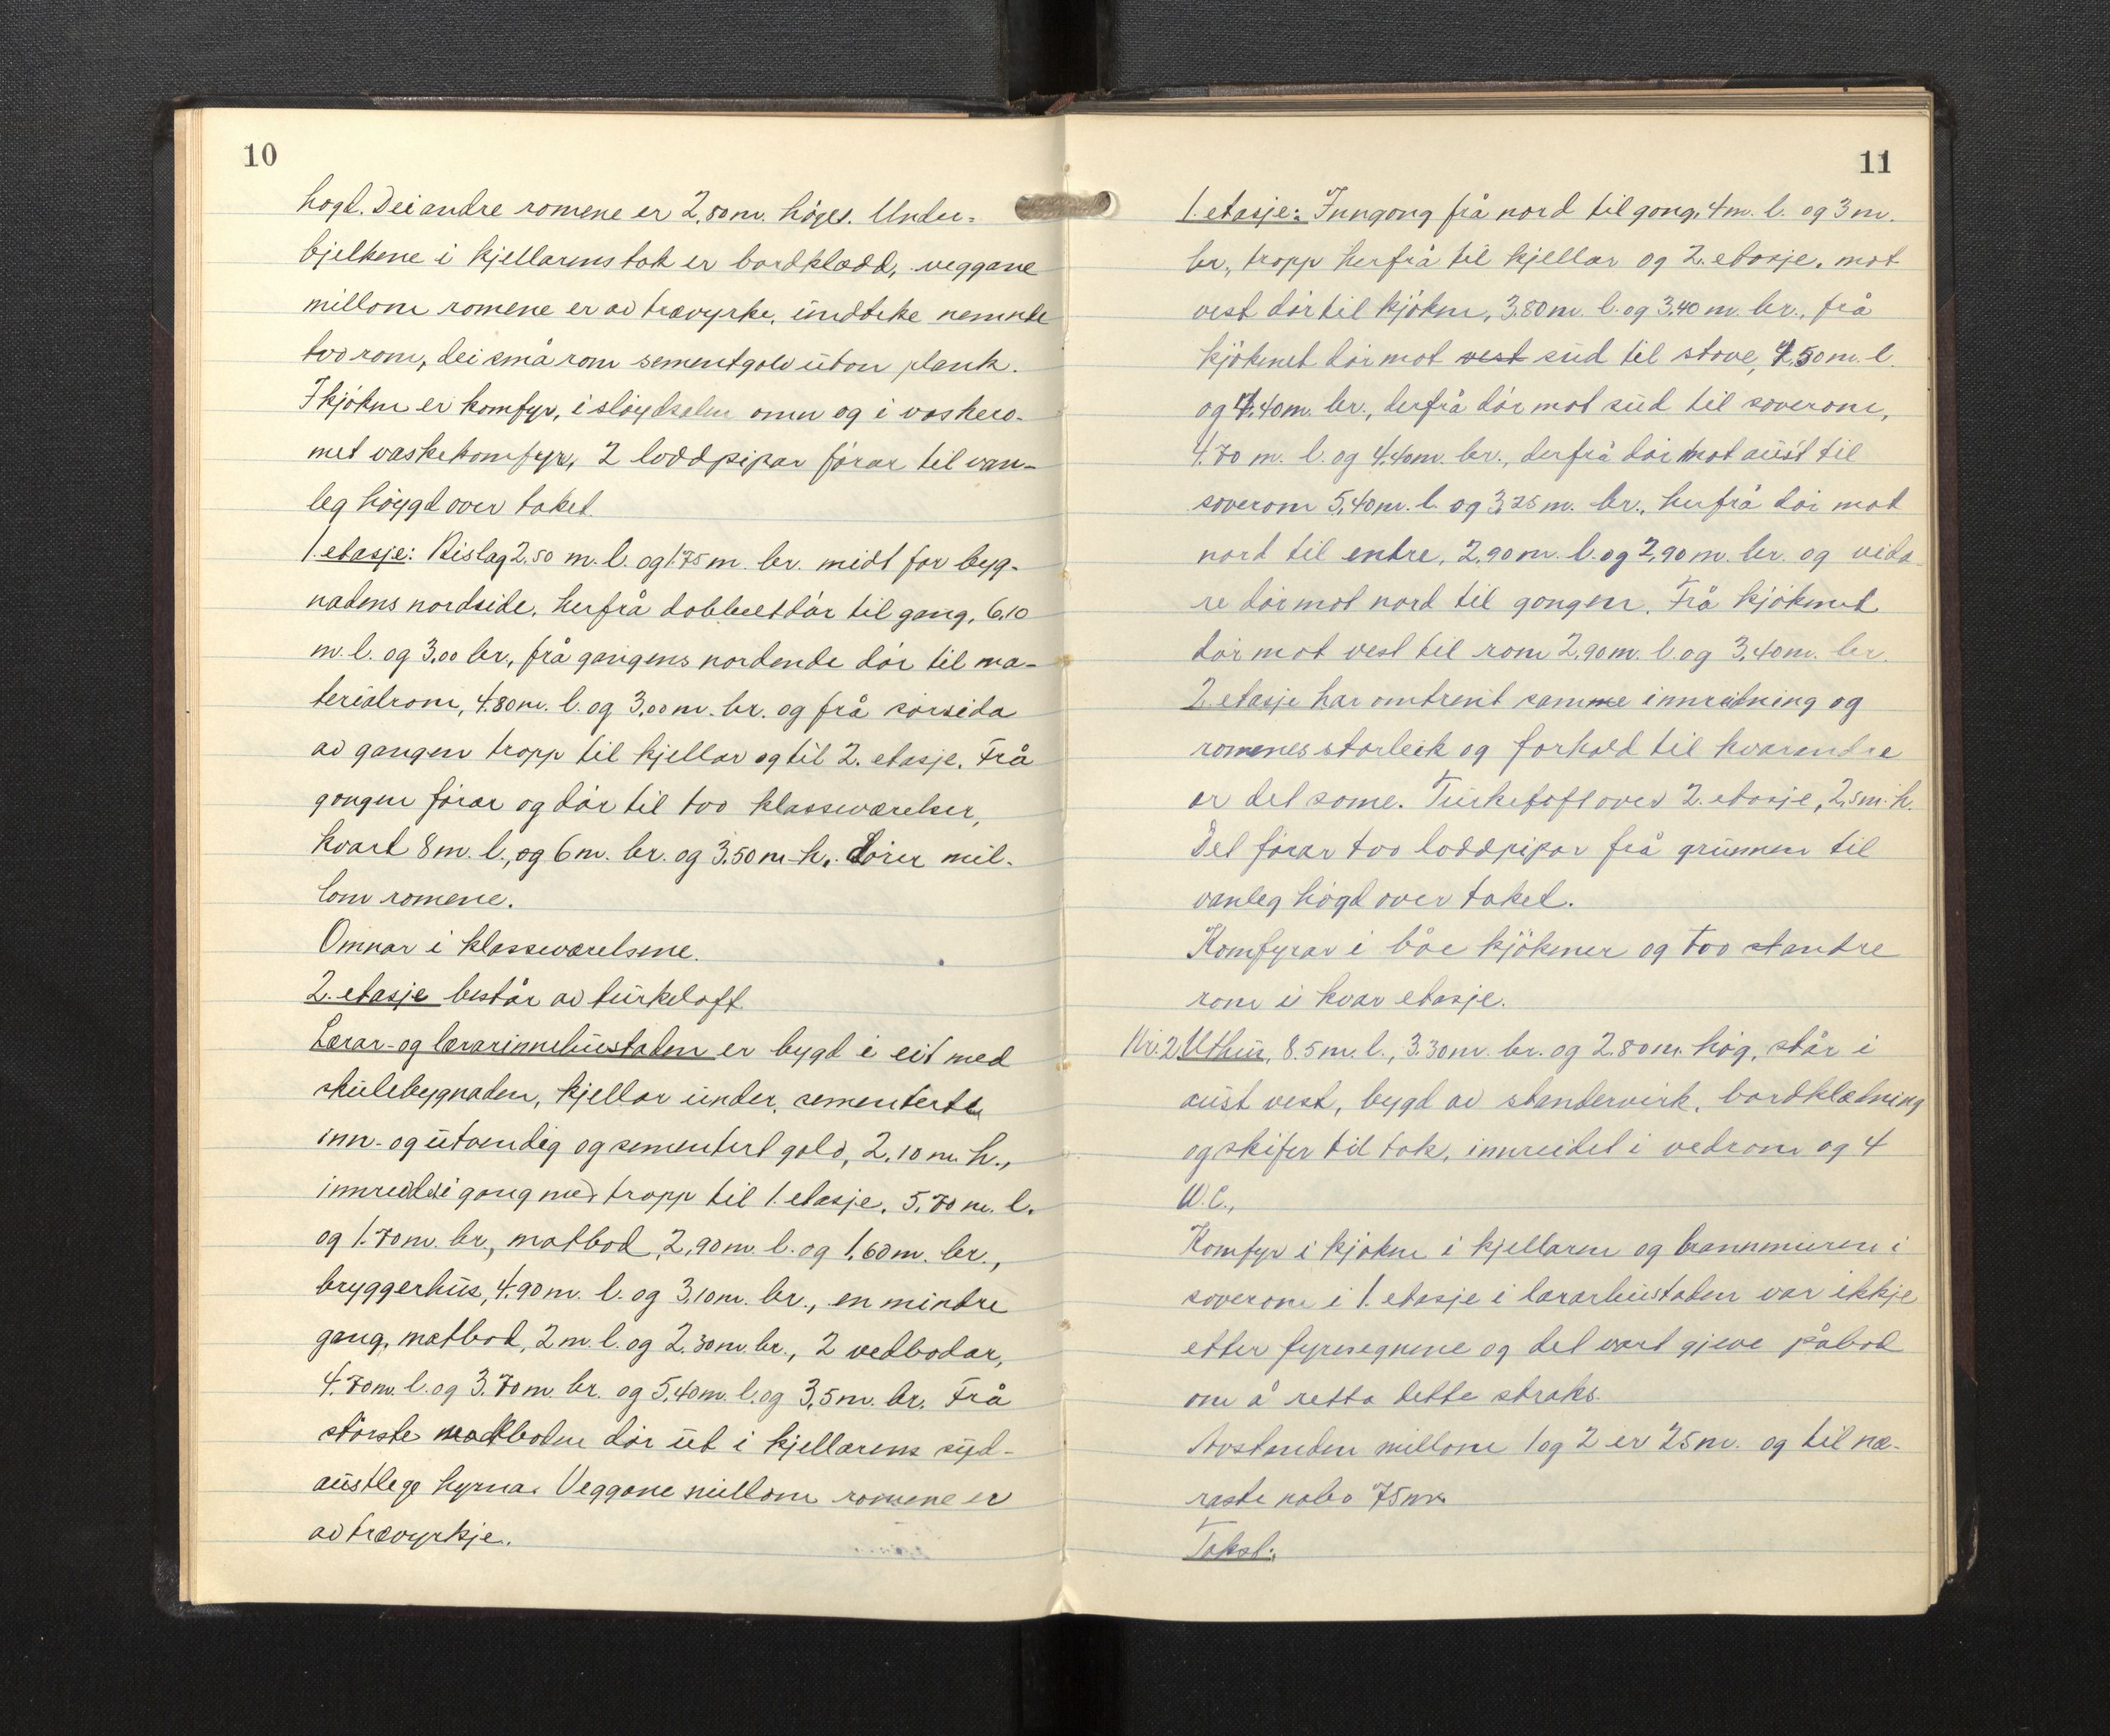 10
høgd. Dei andre romene er 2,80 m. høge. Under-
bjelkene i kjellarens tak er bordklædd, veggane
millom romene er av trævyrke, undteke nemnde
tvo rom, dei små rom sementgolv uton plank.
I kjøken er komfyr, i sløydsalen omn og i voskero-
met vaskekomfyr, 2 loddpipar førar til van-
leg høygd over taket.
1. etasje: Bislag 2,50 m. l. og 1.75 m. br. midt for byg-
nadens nordside, herfrå dobbeltdør til gang, 6,10
m. l. og 3,00 br., frå gangens nordende dør til ma-
terialrom, 4.80 m. l. og 3,00 m. br. og frå sørsida
av gangen tropp til kjellar og til 2. etasje. Frå
gongen førar og dør til tvo klasseværelser,
kvart 8 m. l., og 6 m. br. og 3,50 m. h. Dører mil-
lom romene.
Omnar i klasseværelsene.
2. etasje består av turkeloft.
Lærar- og lærarinnebustaden er bygd i eit med
skulebygnaden, kjellar under, sementerte
inn- og utvendig og sementert golv, 2,10 m. h.,
innreidd i gong med tropp til 1. etasje, 5,70 m. l.
og 1.70 m. br., matbod 2,90 m. l. og 1,60 m. br.,
bryggerhus, 4.90 m. l. og 3,10 m. br., en mindre
gang, matbod, 2 m. l. og 2,30 m. br., 2 vedbodar,
4.70 m. l. og 3.70 m. br. og 5,40 m. l. og 3,5 m. br. Frå
største vedboden dør ut i kjellarens syd-
austlege hyrna. Veggane millom romene er
av trævyrkje.
11
1. etasje: Inngong frå nord til gong, 4 m. l. og 3 m.
br., tropp herfrå til kjellar og 2. etasje, mot
vest dør til kjøken, 3.80 m. l. og 3,40 m. br., frå
kjøkenet dør mot vest sud til stove, 4,50 m. l.
og 4.40 m. br., derfrå dør mot sud til soverom,
4.70 m. l. og 4,40 m. br., derfrå dør mot aust til
soverom 5,40 m. l. og 3,25 m. br., herfrå dør mot
nord til entre, 2,90 m. l. og 2,90 m. br. og vida-
re dør mot nord til gongen. Frå kjøkenet
dør mot vest til rom 2,90 m. l. og 3,40 m. br.
2. etasje har omtrent samme innreidning og
romenes storleik og forhold til kvarandre
er det same. Turkeloft over 2. etasje, 2,5 m. h.
Det førar tvo loddpipar frå grunnen til
vanleg høgd over taket.
Komfyrar i båe kjøkener og tvo st andre
rom i kvar etasje.
Nr. 2 Uthus, 8.5 m. l., 3.30 m. br. og 2.80 m. høg, står i
aust vest, bygd av standervirk, bordklædning
og skifer til tak, innreidet i vedrom og 4
W.C.,
Komfyr i kjøken i kjellaren og brannmuren i
soverom i 1. etasje i lærarbustaden var ikkje
etter fyresegnene og det vart gjeve påbod
om å retta dette straks.
Avstanden millom 1 og 2 er 25 m. og til næ-
raste nabo 75 m.
Takst: